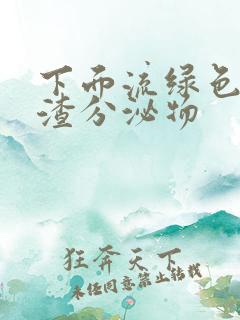 下面流绿色
渣分泌物
狂奔天下
未经同意禁止转载